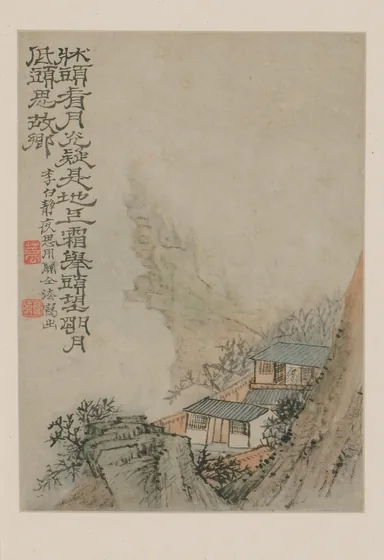 牀頭看月光疑是地上霜舉頭望明月
低頭思故鄉
李白靜夜思用關仝法寫之